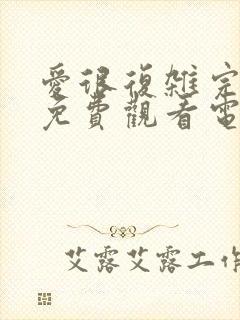 愛很復雜完
免費觀看電
艾露艾露工作